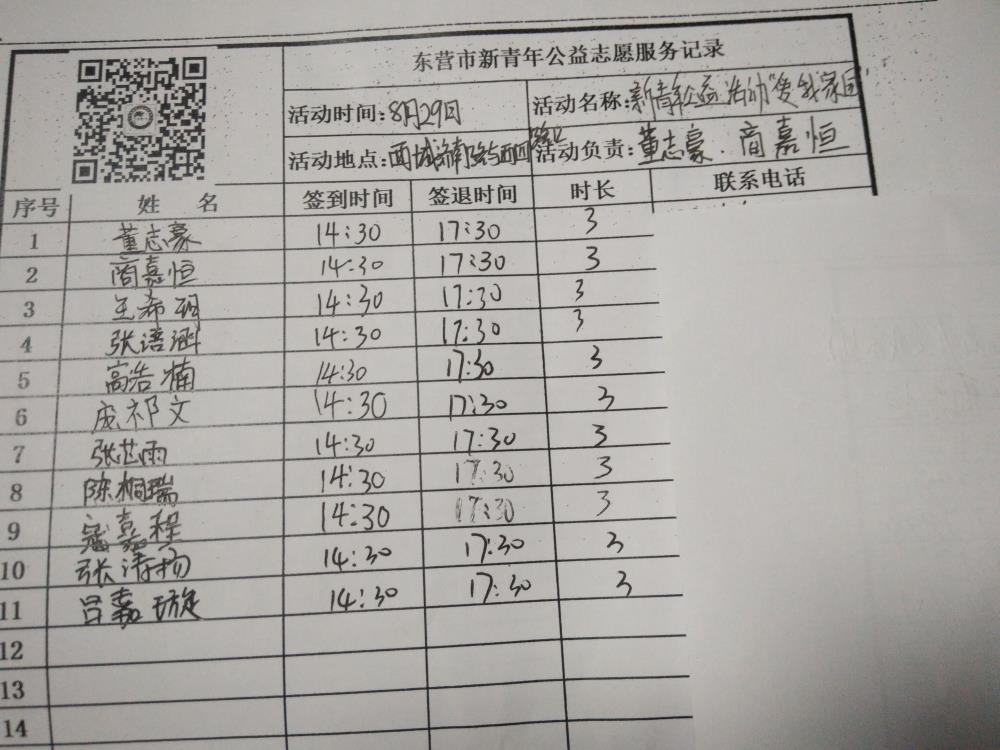 东营市新青年公益志愿服务记录
活动时间:8月29日 活动名称:新青年公益活动"爱我家园"
活动地点:西城济南路与西四路口 活动负责:董志豪.商嘉恒
序号 姓 名 签到时间 签退时间 时长 联系电话
1 董志豪 14:30 17:30 3
2 商嘉恒 14:30 17:30 3
3 王希玥 14:30 17:30 3
4 张语涵 14:30 17:30 3
5 高浩楠 14:30 17:30 3
6 庞祁文 14:30 17:30 3
7 张芷雨 14:30 17:30 3
8 陈桐瑞 14:30 17:30 3
9 寇嘉程 14:30 17:30 3
10 张涛扬 14:30 17:30 3
11 吕嘉璇 14:30 17:30 3
12
13
14